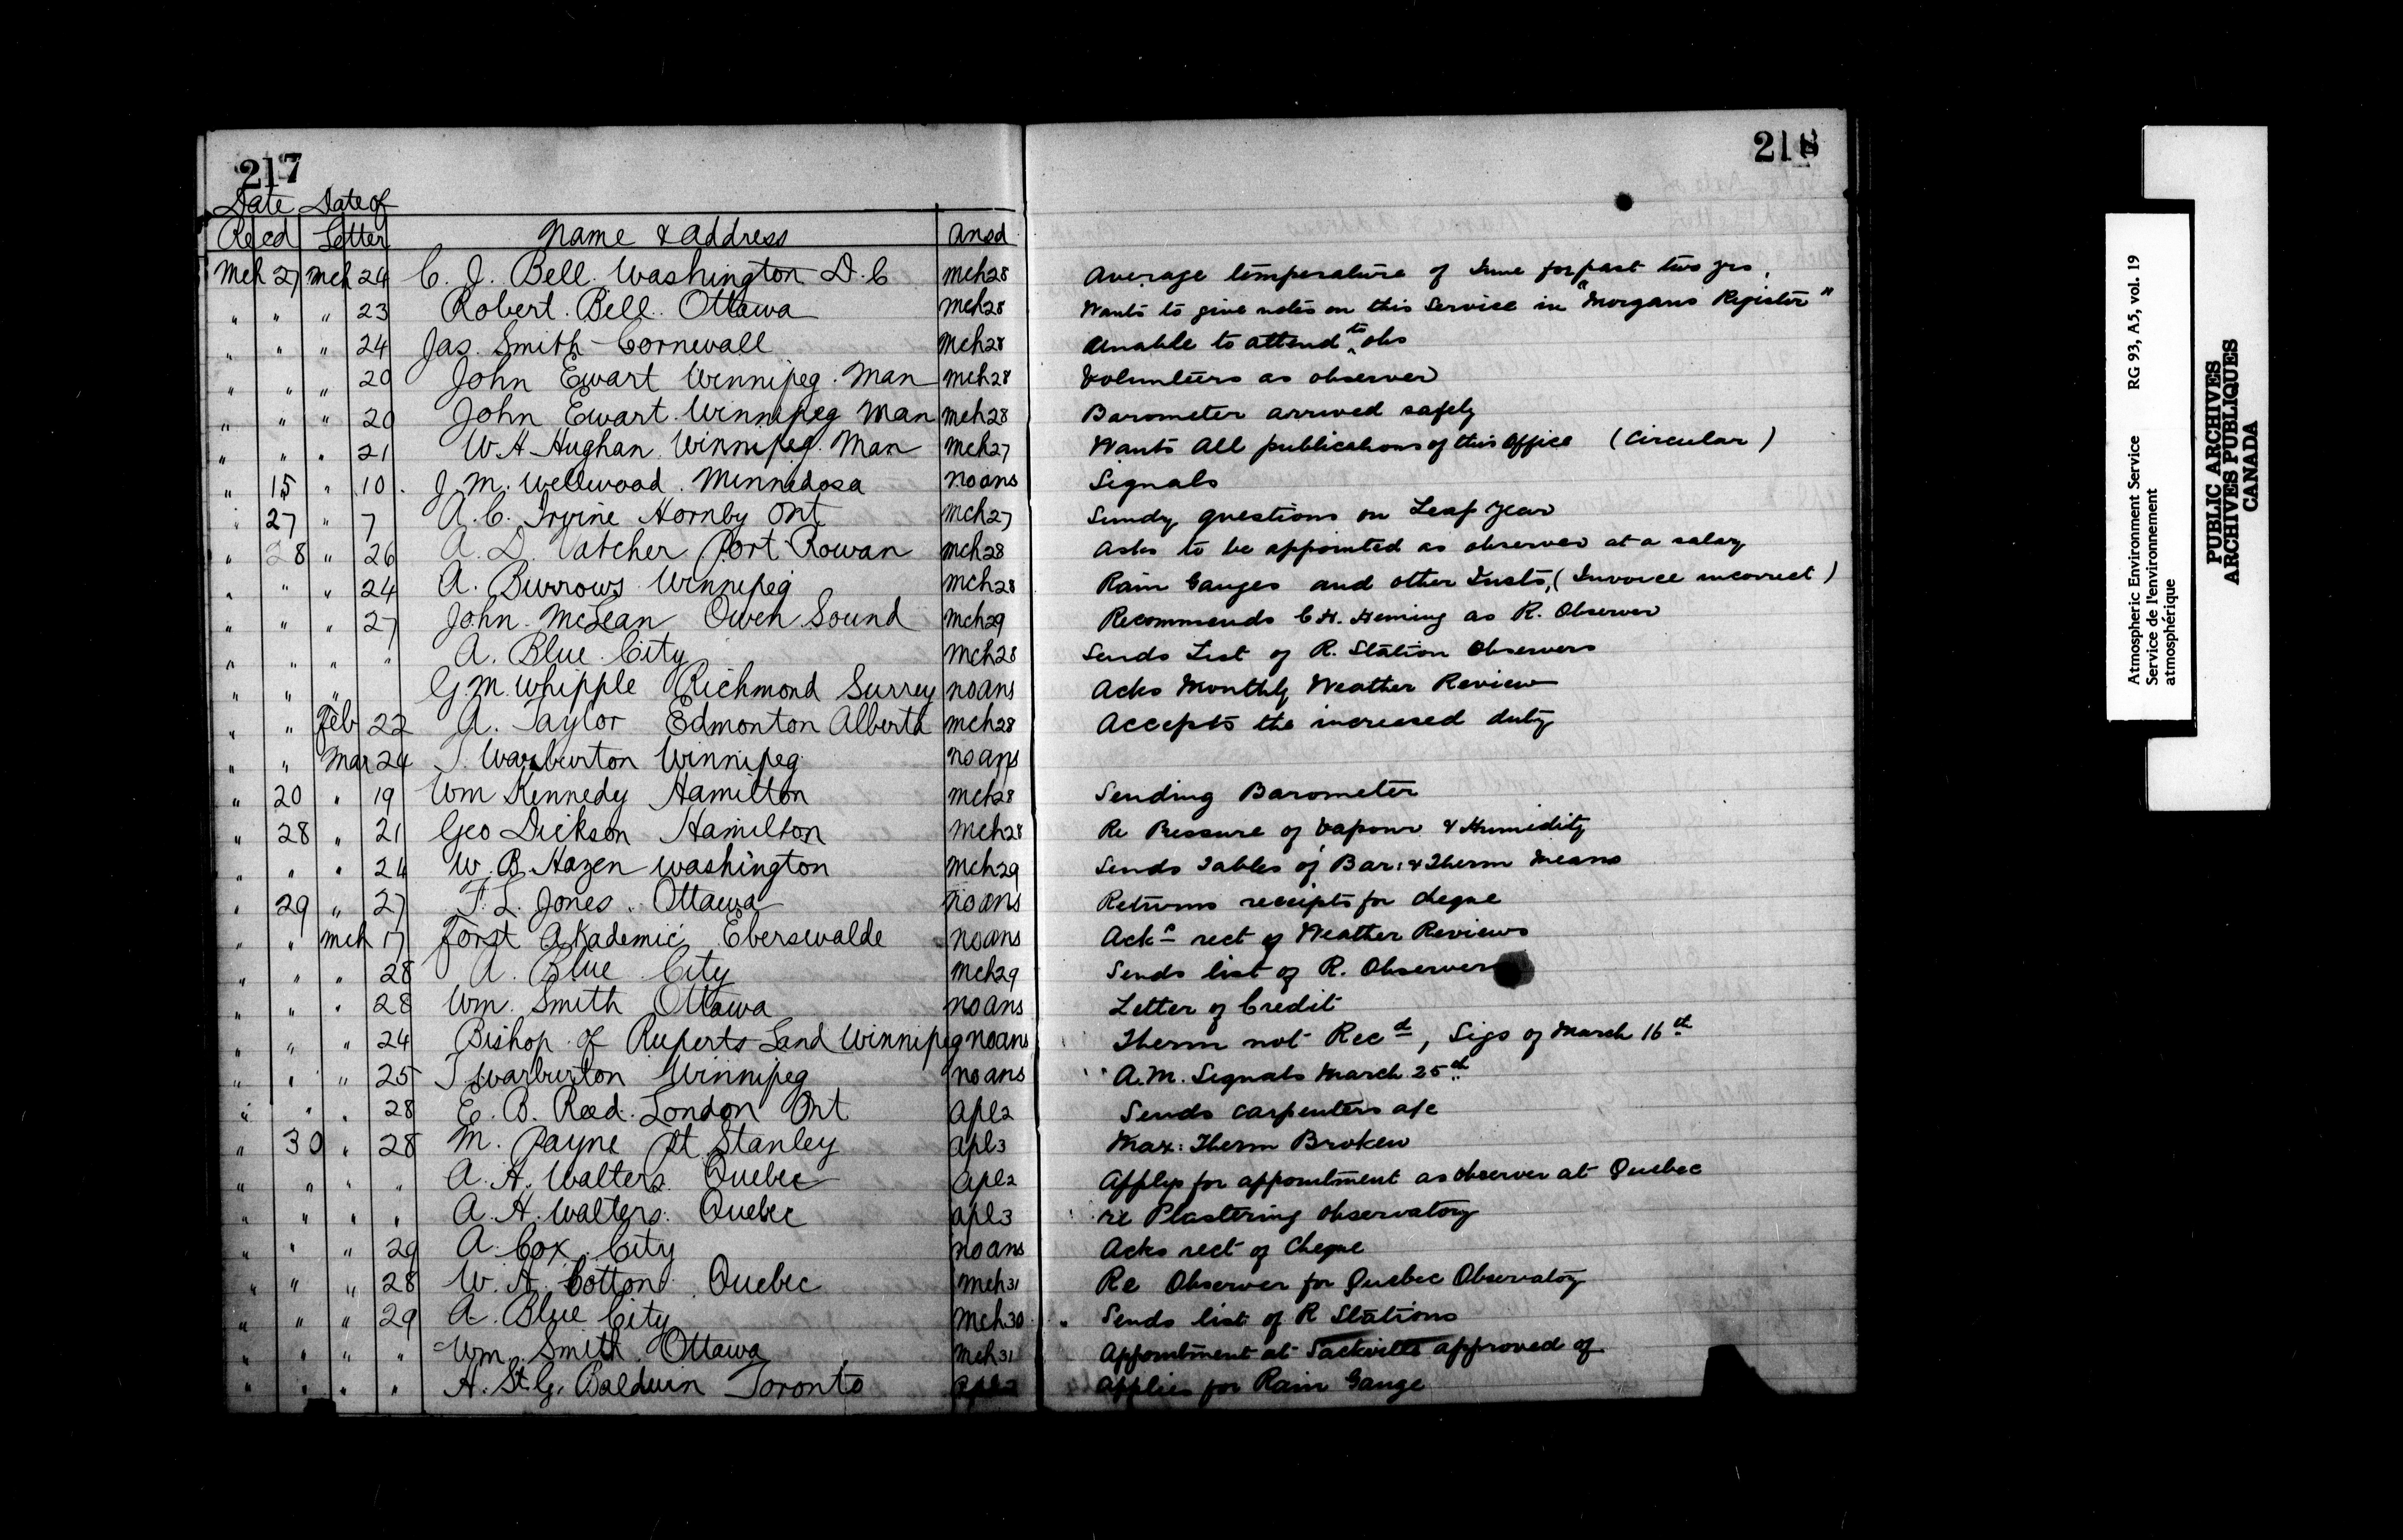 217
218
Date Date of
Recd Letter Name & Address Ansd
Mch 27 Mch 24 C. J. Bell Washington D.C Mch 28 Average temperature of June for past two yrs.
" " " 23 Robert Bell Ottawa Mch 28 Wants to give notes on this Service in "Morgans Register"
" " " 24 Jas. Smith Cornwall Mch 28 Unable to attend to obs
" " " 20 John Ewart Winnipeg Man Mch 28 Volunteers as observer
" " " 20 John Ewart Winnipeg Man Mch 28 Barometer arrived safely
" " " 21 W. A. Hughan Winnipeg Man Mch 27 Wants All publications of this Office (Circular)
" 15 " 10 J. M. Wellwood. Minnedosa no ans Signals
" 27 " 7 A. C. Irvine Hornby Ont Mch 27 Sundy questions on Leap Year
" 28 " 26 A. D. Vatcher Port Rowan Mch 28 Asks to be appointed as observer at a salary
" " " 24 A. Burrows Winnipeg Mch 28 Rain Gauges and other Insts, (Invoice incorrect)
" " " 27 John McLean Owen Sound Mch 29 Recommends C. H. Heming as R. Observer
" " " " A. Blue City Mch 28 Sends List of R. Station Observers
" " " G. M. Whipple Richmond Surrey no ans Acks Monthly Weather Review
" " Feb 22 A. Taylor Edmonton Alberta Mch 28 Accepts the increased duty
" " Mar 24 T. Warburton Winnipeg no ans
" 20 " 19 Wm Kennedy Hamilton Mch 28 Sending Barometer
" 28 " 21 Geo Dickson Hamilton Mch 28 Re Pressure of Vapour & Humidity
" " " 24 W. B. Hazen Washington Mch 29 Sends Tables of Bar: & Therm Means
" 29 " 27 F. L. Jones. Ottawa no ans Returns receipts for cheque
" " Mch 17 Forst Akademie Eberswalde no ans Ack^s rect of Weather Reviews
" " " 28 A. Blue City Mch 29 Sends list of R. Observers
" " " 28 Wm. Smith Ottawa no ans Letter of Credit
" " " 24 Bishop of Ruperts Land Winnipeg no ans Therm not Rec^d, Sigs of March 16th
" " " 25 T. Warburton Winnipeg no ans A.M. Signals March 25th
" " " 28 E. B. Reed. London Ont Apl 2 Sends carpenters a/c
" 30 " 28 M. Payne Pt Stanley Apl 3 Max: Therm Broken
" " " " A. A. Walters Quebec Apl 2 Applys for appointment as observer at Quebec
" " " " A. H. Walters Quebec Apl 3 re Plastering observatory
" " " 29 A. Cox City no ans Acks rect of Cheque
" " " 28 W. A. Cotton Quebec Mch 31 Re Observer for Quebec Observatory
" " " 29 A. Blue City Mch 30 Sends list of R Stations
" " " " Wm. Smith Ottawa Mch 31 Appointment at Sackville approved of
" " " " H. St. G. Baldwin Toronto Apl 2 Applies for Rain Gauge
Atmospheric Environment Service RG 93, A5, vol. 19
Service de l'environnement
atmosphérique
PUBLIC ARCHIVES
ARCHIVES PUBLIQUES
CANADA